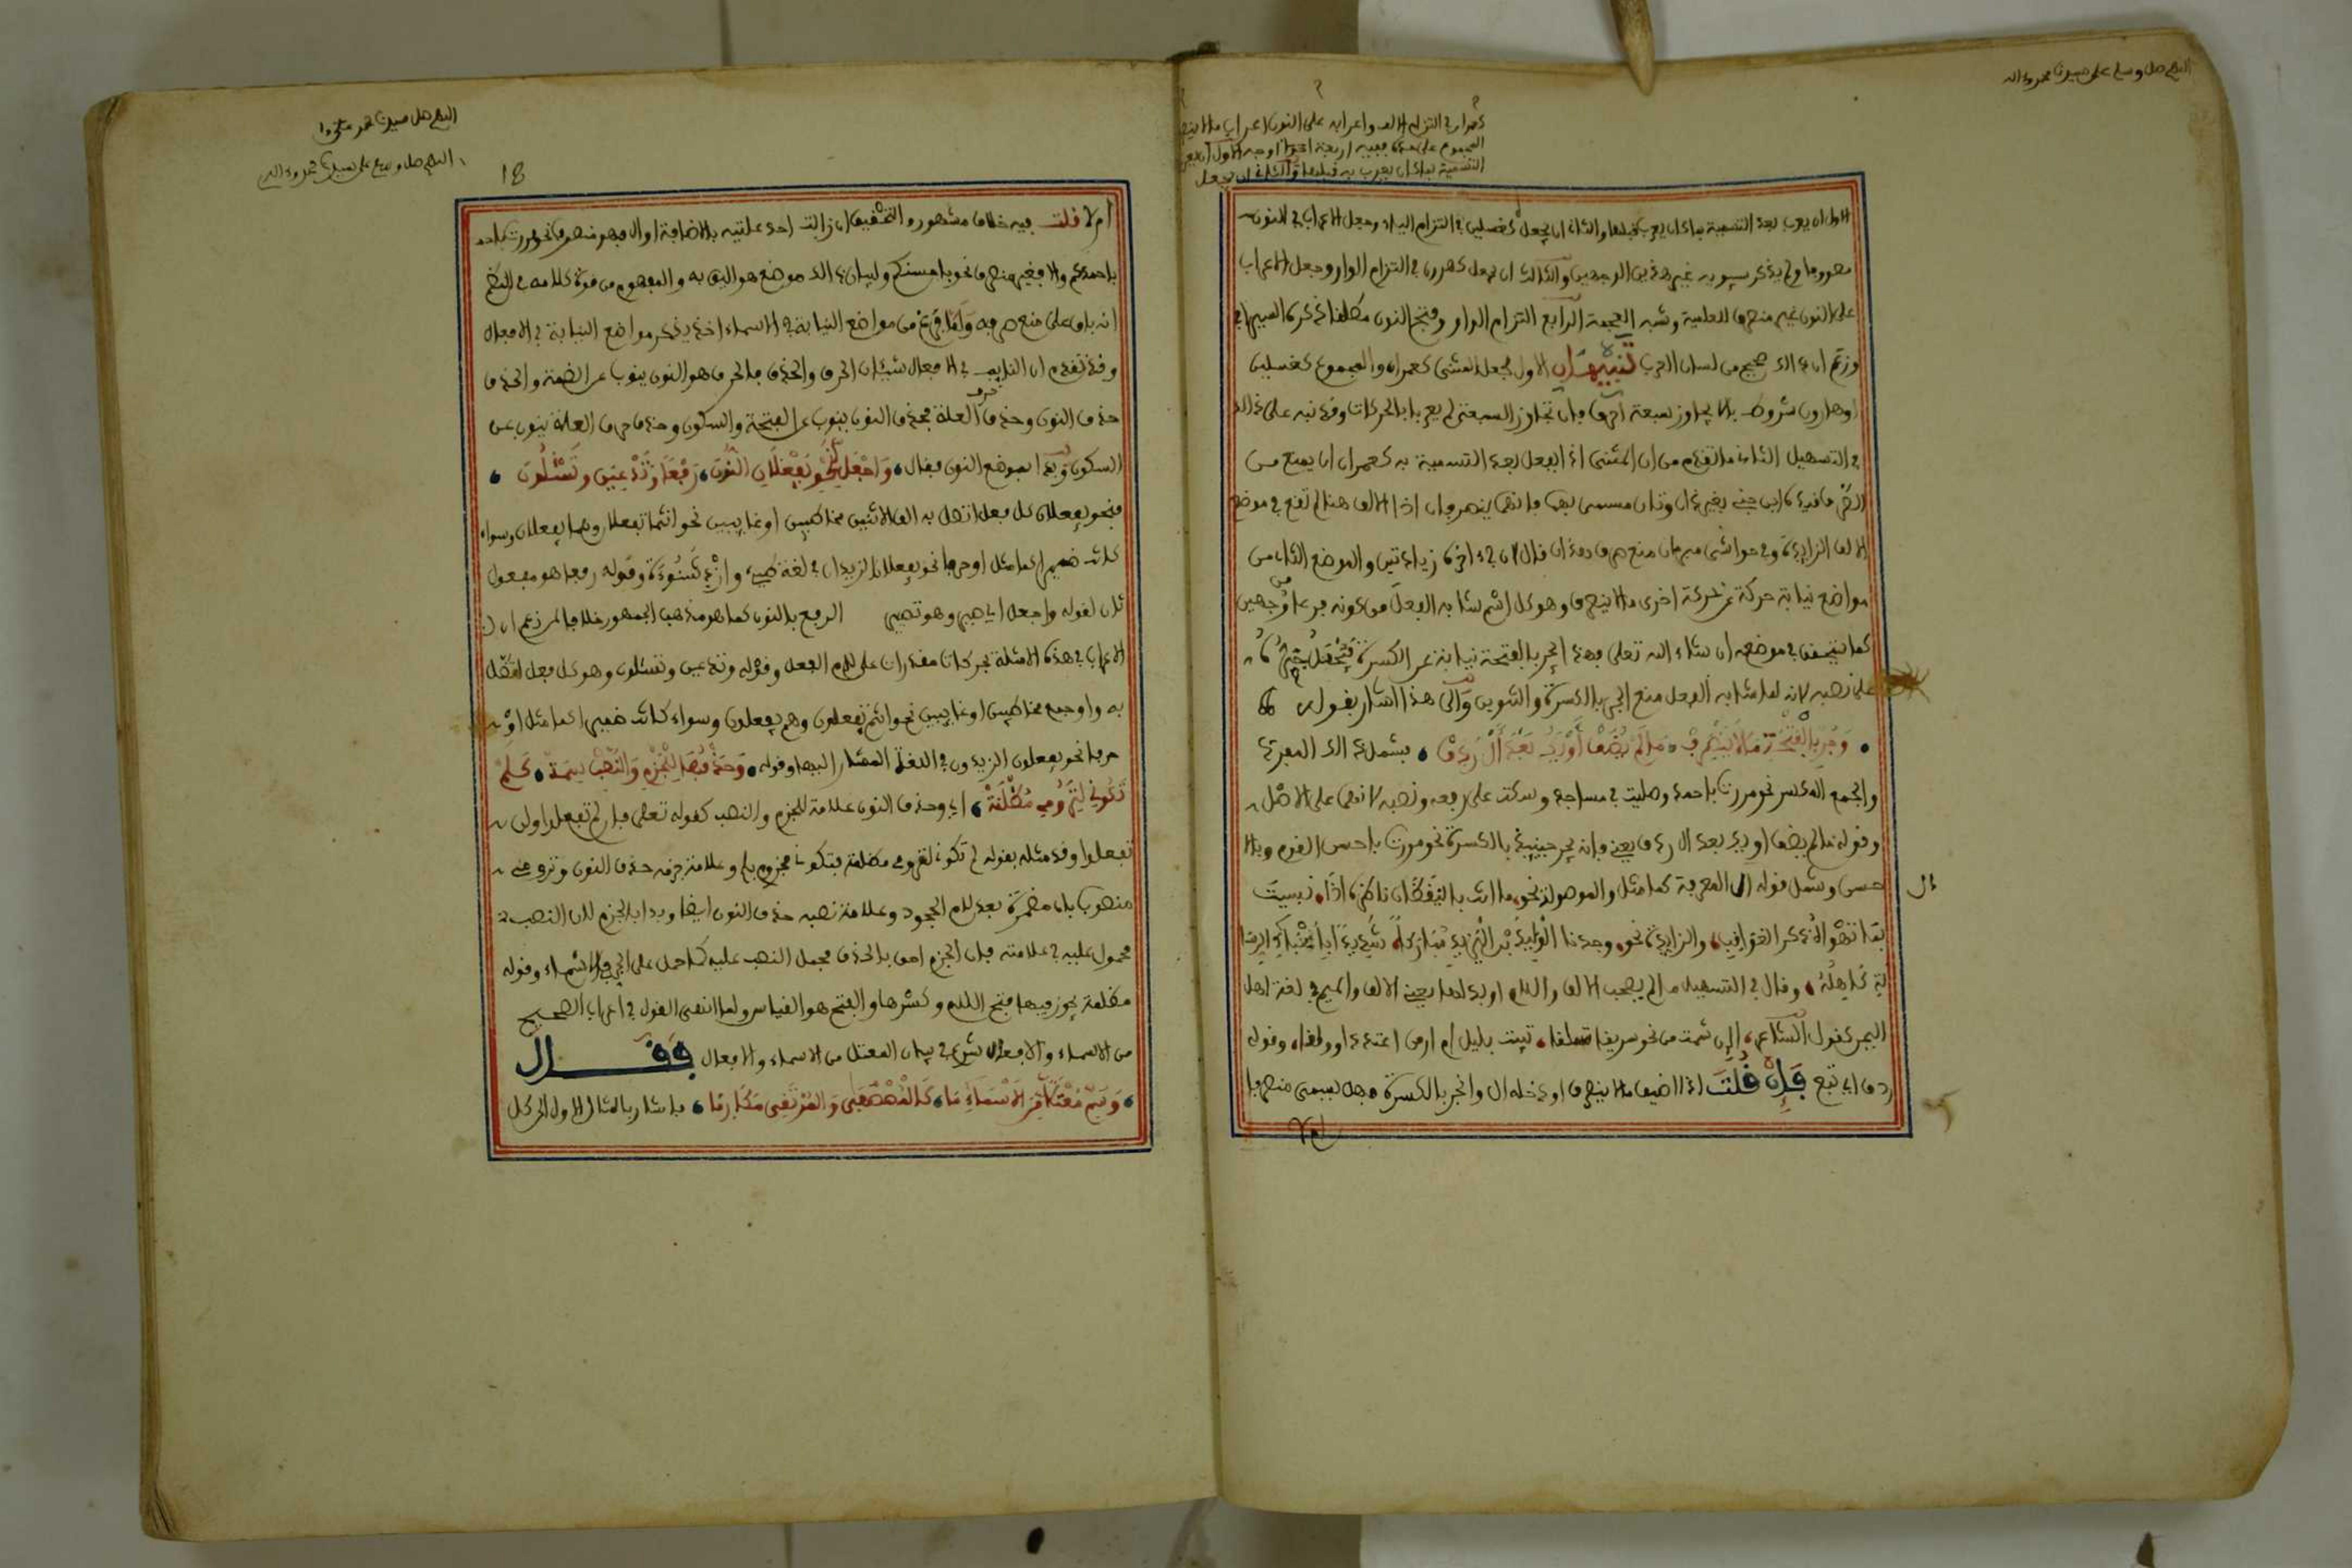 اللهم صل وسلم على سيدنا محمد وءاله
كعمران في التزام الالف واعرابه على النون اعراب ما لا ينصرف
المجموع على حده ففيه اربعة اوجه الاول ان يعرب
التسمية بما كان يعرب به قبلها والثاني ان يجعل
الاول ان يعرب بعد التسمية بما كان يعرب به قبلها والثاني ان يجعل كغسلين في التزام الياء وجعل الاعراب في النون
مصروفا ولم يذكر سيبويه غير هذين الوجهين والثالث ان يجعل كهارون في التزام الواو وجعل الاعراب
على النون غير منصرف للعلمية وشبه العجمة الرابع التزام الواو وفتح النون مطلقا ذكره السيرافي
وزعم ان ذالك صحيح من لسان العرب تنبيهان الاول لجعل المثنى كعمران والمجموع كغسلين
او هارون شروط بالا يجاوز سبعة احرف فان تجاوز السبعة لم يعرب بالحركات وقد نبه على ذالك
في التسهيل الثاني ما تقدم من ان المثنى اذا جعل بعد التسمية به كعمران ان يمنع من
الصرف قيده ابن جني بغير ذان وتان مسمى بهما فانهما ينصرفان اذا الالف هنا لم تقع في موضع
الالف الزايدة وفي حواشي مبرمان منع صرف ذان قال لان في ءاخره زيادتين والموضع الثاني من
مواضع نيابة حركة عن حركة اخرى ما لا ينصرف وهو كل اسم شابه الفعل من كونه فرعا من وجهين
كما يتحقق في موضعه ان شاء الله تعلى فهذا يجر بالفتحة نيابة عن الكسرة فتحمل جره
على نصبه لانه لما شابه الفعل منع الجر بالكسرة والتنوين والى هذا اشار بقوله
وَجُرَّ بِالْفَتْحَةِ مَا لَا يَنْصَرِفْ مَا لَمْ يُضَفْ أَوْ يَكُ بَعْدَ أَلْ رَدِفْ فشمل ذالك المفرد
والجمع المكسر نحو مررت باحمد وصليت في مساجد وسكت على رفعه ونصبه لانهما على الاصل
وقوله ما لم يضف او يك بعد ال ردف يعني فانه يجر حينئذ بالكسرة نحو مررت باحسن القوم وبالا
حسن وشمل قوله ال المعرفة كما مثل والموصولة نحو ما انت باليقظان ناظره اذا نسيت
ال
بما تهواه ذكر العواقب والزايدة نحو وجدنا الوليد بن اليزيد مباركا شديدا باعباء
لة كاهله وقال في التسهيل ما لم يصحب الالف واللام او بدلها يعني الالف والميم في لغة اهل
اليمن كقول الشاعر اإن شمت من نجد بريقا تبيت بليل ام ارمد اعتاد اولقا وقوله
ردف اي تبع فَإِنْ قُلْتَ اذا اضيف ما لا ينصرف او دخله ال وانجر بالكسرة فهل يسمى منصرفا
ام لا
اللهم صل سيدنا محمد
اللهم صل وسلم على سيدنا محمد وءاله
18
ام لا قلت فيه خلاف مشهور والتحقيق ان زالت احدى علتيه بالاضافة او ال فهو منصرف نحو مررت
باحمدكم والا فغير منصرف نحو باحسنكم ولبيان ذالك موضع هو اليق به والمفهوم من قوة كلامه في النظم
انه باق على منع صرفه ولما فرغ من مواضع النيابة في الاسماء اخذ يذكر مواضع النيابة في الافعال
وقد تقدم ان النايب في الافعال شيئان الحرف والحذف فالحرف هو النون ينوب عن الضمة والحذف
حذف النون وحذف حرف العلة فحذف النون ينوب عن الفتحة والسكون وحذف حرف العلة ينوب عن
السكون وبدا بموضع النون فقال وَاجْعَلْ لِنَحْوِ يَفْعَلَانِ النُّونَ رَفْعًا وَتَدْعِينَ وَتَسْأَلُونَ
فنحو يفعلان كل فعل اتصل به الف الاثنين مخاطبين او غايبين نحو انتما تفعلان وهما يفعلان وسواء
كانت ضميرا كما مثل او حرفا نحو يفعلان الزيدان في لغة طيء وازد شنوءة وقوله رفعا هو مفعول
ثان لقوله واجعل اي صير وهو تصيير الرفع بالنون كما هو مذهب الجمهور خلافا لمن زعم ان
الاعراب في هذه الامثلة بحركات مقدرات على لام الفعل وقوله وتدعين وتسئلون وهو كل فعل اتصل
به واو جمع مخاطبين او غايبين نحو انتم تفعلون وهم يفعلون وسواء كانت ضميرا كما مثل او
حرفا نحو يفعلون الزيدون في اللغة المشار اليها وقوله وَحَذْفُهَا لِلْجَزْمِ وَالنَّصْبِ سِمَهْ كَلَمْ
تَكُونِي لِتَرُومِي مَظْلَمَهْ اي وحذف النون علامة للجزم والنصب كقوله تعلى فان لم تفعلوا ولن
تفعلوا وقد مثله بقوله لم تكوني لترومي مظلمة فتكوني مجزوم بلم وعلامة جزمه حذف النون وترومي
منصوب بان مضمرة بعد لام الجحود وعلامة نصبه حذف النون ايضا وبدا بالجزم لان النصب
محمول عليه في علامته فان الجزم احق بالحذف فحمل النصب عليه كما حمل على الجر في الاسماء وقوله
مظلمة يجوز فيها فتح اللام وكسرها والفتح هو القياس ولما انقضى القول في اعراب الصحيح
من الاسماء والافعال شرع في بيان المعتل من الاسماء والافعال فقال
وَسَمِّ مُعْتَلًّا مِنَ الْأَسْمَاءِ مَا كَالْمُصْطَفَى وَالْمُرْتَقِي مَكَارِمَا فاشار بالمثال الاول الى كل